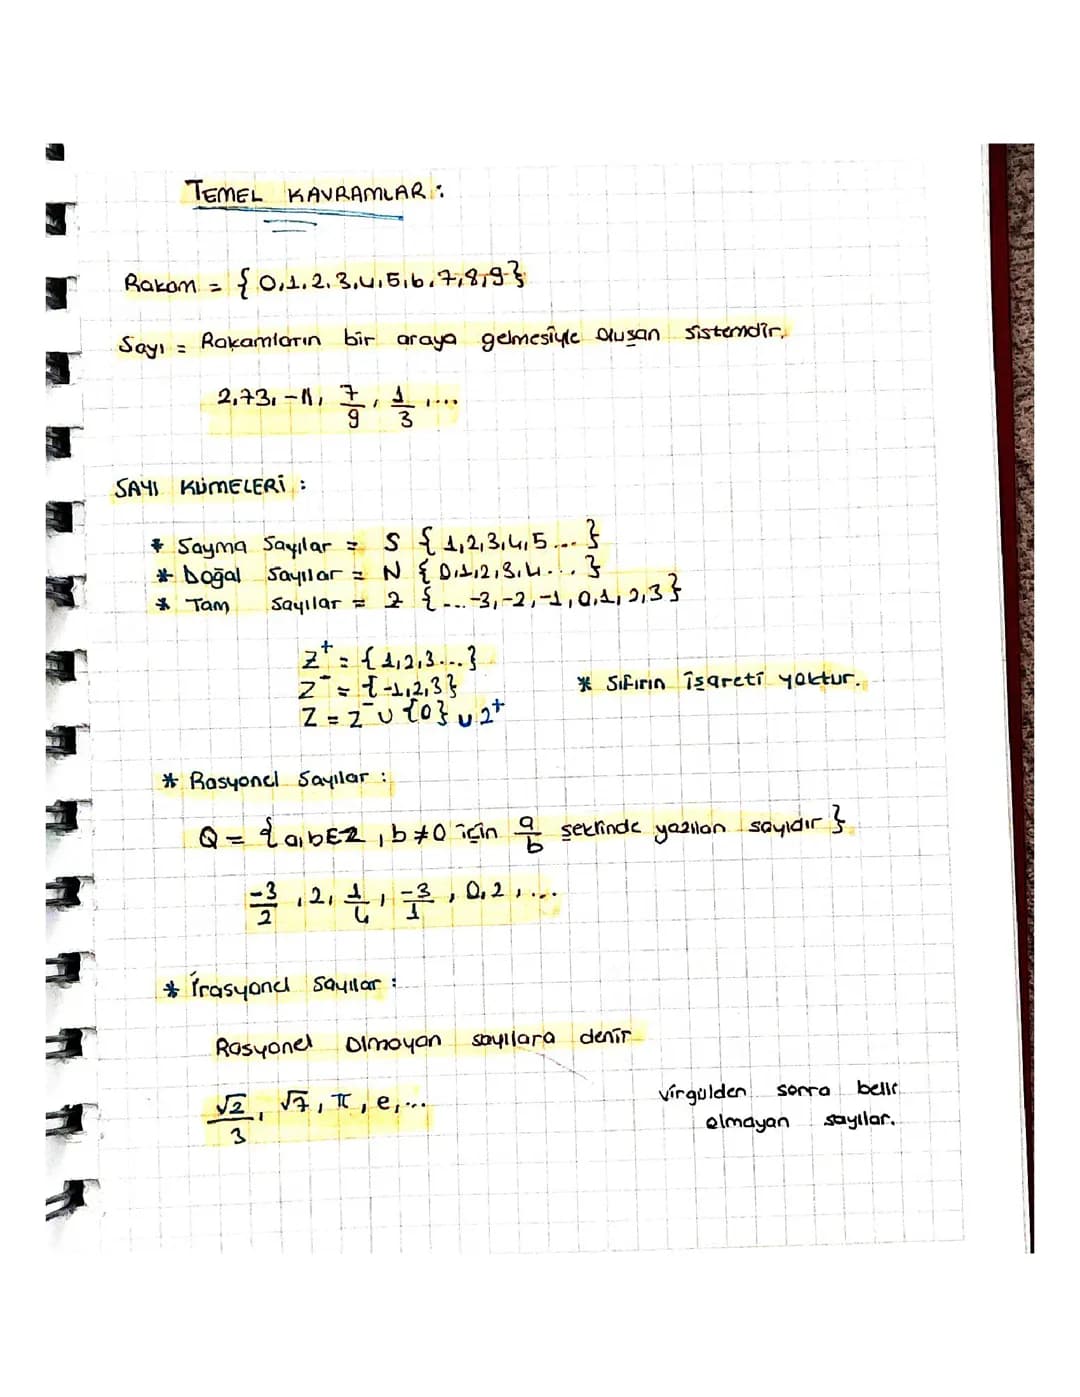 TEMEL KAVRAMLAR :
Rakam = {0,1,2,3,4,5,6,7,8,9}
Sayı = Rakamların bir araya gelmesiyle oluşan sistemdir.
2,73, -11, 7/9, 1/3, ...
SAYI KÜMELERİ :
* Sayma Sayılar = S {1,2,3,4,5...}
* Doğal Sayılar = N {0,1,2,3,4...}
* Tam Sayılar = Z {...-3,-2,-1,0,1,2,3}
Z⁺ = {1,2,3...}
Z⁻ = {-1,2,3}
* Sıfırın işareti yoktur.
Z = Z⁻ ∪ {0} ∪ Z⁺
* Rasyonel Sayılar :
Q = {a,b∈Z, b≠0 için a/b şeklinde yazılan sayıdır}
-3/2, 2, 1/4, -3/1, 0,2, ...
* İrasyonel Sayılar :
Rasyonel olmayan sayılara denir
√2/3, √7, π, e, ...
virgülden sonra belli
olmayan sayılar.